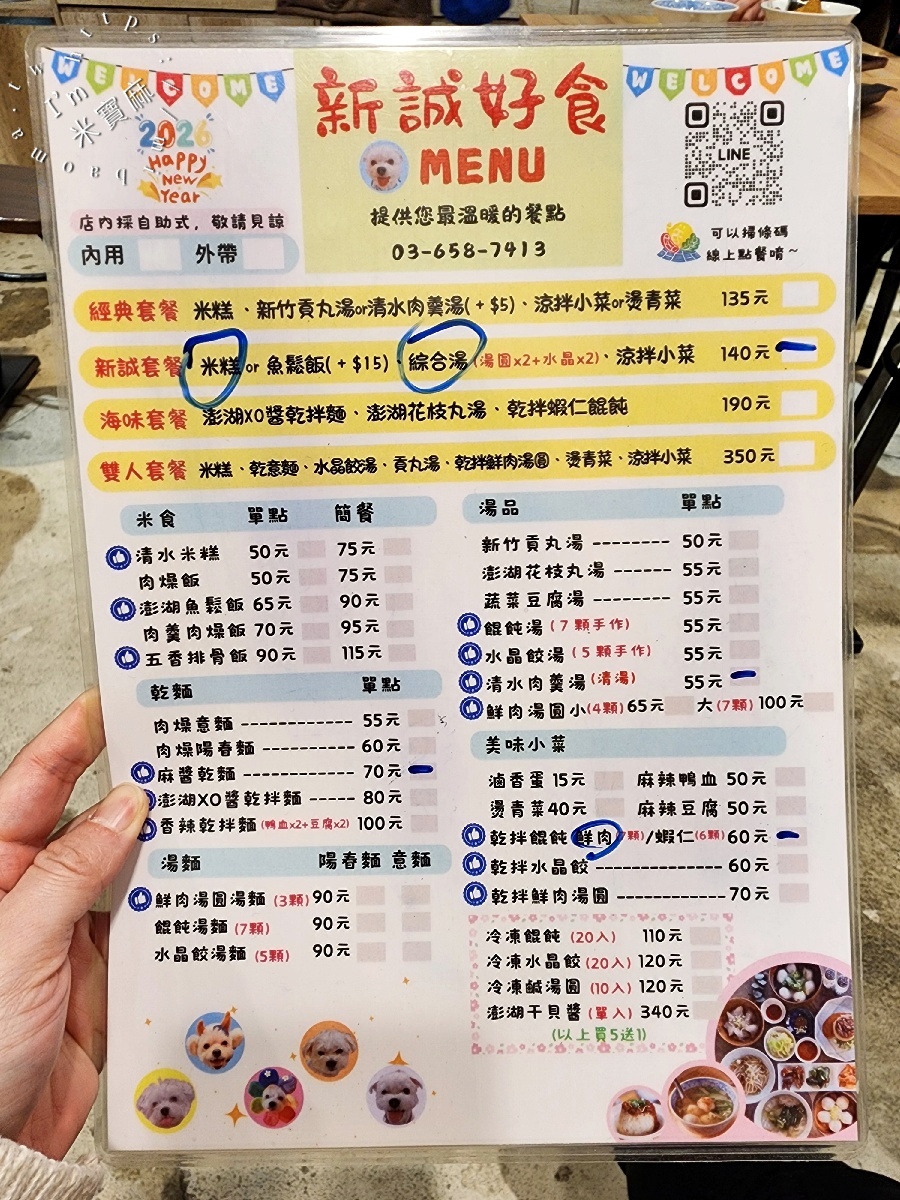 WELCOME
新誠好食
WELCOME
米寶麻
2026
Happy
New
Year
MENU
LINE
提供您最溫暖的餐點
03-658-7413
店內採自助式，敬請見諒
內用 外帶
可以掃條碼
線上點餐唷～
經典套餐 米糕、新竹貢丸湯or清水肉羹湯(+$5)、涼拌小菜or燙青菜 135元
新誠套餐 米糕or 魚鬆飯(+$15)、綜合湯(湯圓x2+水晶x2)、涼拌小菜 140元
海味套餐 澎湖XO醬乾拌麵、澎湖花枝丸湯、乾拌蝦仁餛飩 190元
雙人套餐 米糕、乾意麵、水晶餃湯、貢丸湯、乾拌鮮肉湯圓、燙青菜、涼拌小菜 350元
米食 單點 簡餐
清水米糕 50元 75元
肉燥飯 50元 75元
澎湖魚鬆飯 65元 90元
肉羹肉燥飯 70元 95元
五香排骨飯 90元 115元
乾麵 單點
肉燥意麵 ------------ 55元
肉燥陽春麵 ---------- 60元
麻醬乾麵 ------------ 70元
澎湖XO醬乾拌麵 ----- 80元
香辣乾拌麵 (鴨血x2+豆腐x2) 100元
湯麵 陽春麵 意麵
鮮肉湯圓湯麵 (3顆) 90元
餛飩湯麵 (7顆) 90元
水晶餃湯麵 (5顆) 90元
湯品 單點
新竹貢丸湯 -------- 50元
澎湖花枝丸湯 ------ 55元
蔬菜豆腐湯 -------- 55元
餛飩湯 (7顆手作) 55元
水晶餃湯 (5顆手作) 55元
清水肉羹湯 (清湯) 55元
鮮肉湯圓 小(4顆) 65元 大(7顆) 100元
美味小菜
滷香蛋 15元 麻辣鴨血 50元
燙青菜 40元 麻辣豆腐 50元
乾拌餛飩 鮮肉(7顆)/蝦仁(6顆) 60元
乾拌水晶餃 -------------- 60元
乾拌鮮肉湯圓 ------------ 70元
冷凍餛飩 (20入) 110元
冷凍水晶餃 (20入) 120元
冷凍鹹湯圓 (10入) 120元
澎湖干貝醬 (單入) 340元
(以上買5送1)